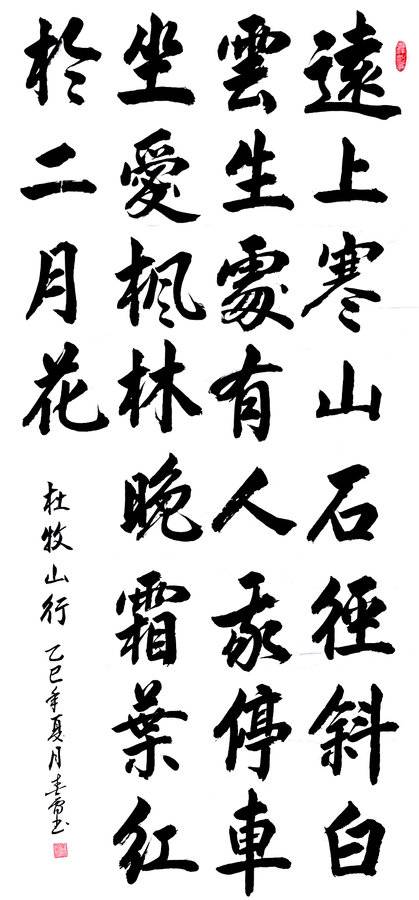 遠上寒山石徑斜白
雲生處有人家停車
坐愛楓林晚霜葉紅
於二月花
杜牧山行 乙巳年夏月